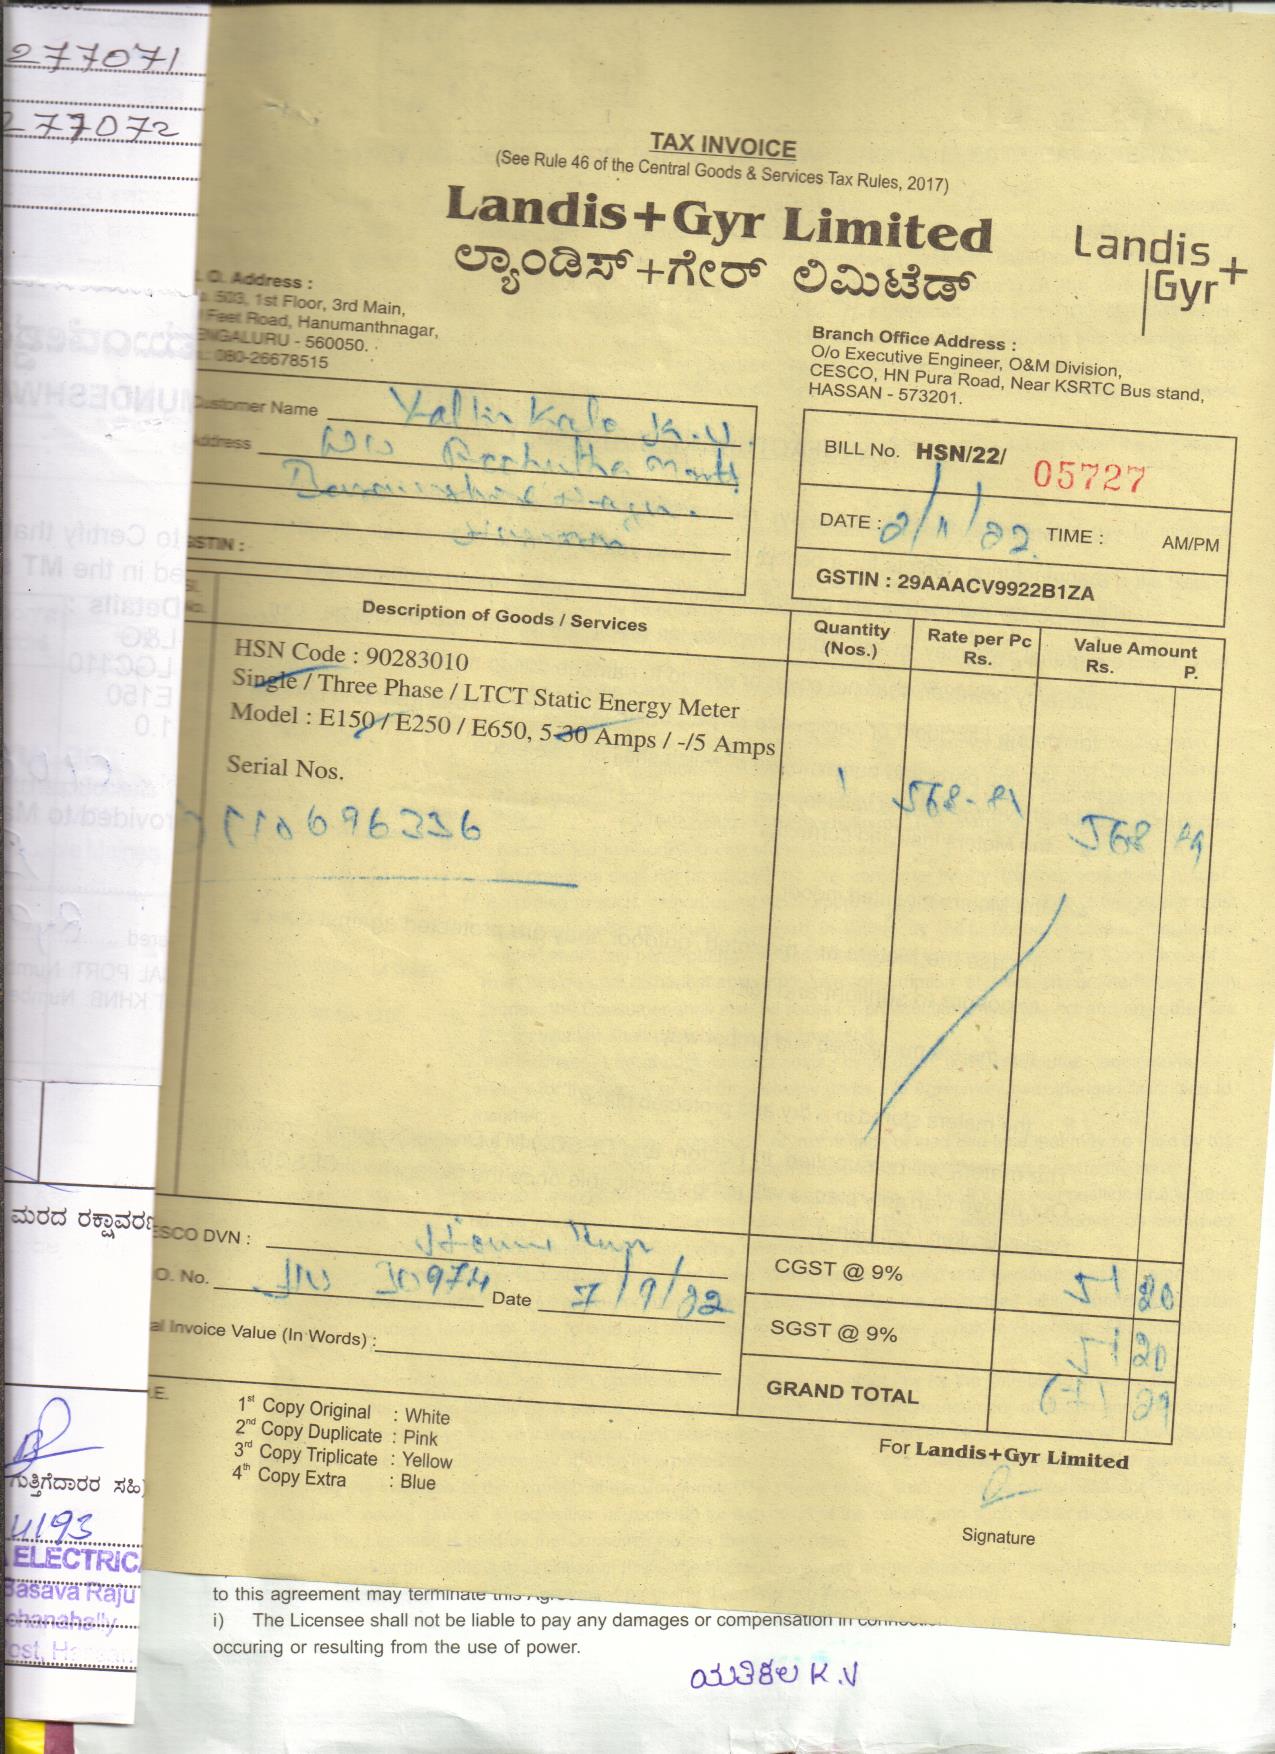 277071
277072
TAX INVOICE
(See Rule 46 of the Central Goods & Services Tax Rules, 2017)
Landis+Gyr Limited
ಲ್ಯಾಂಡಿಸ್+ಗೇರ್ ಲಿಮಿಟೆಡ್
Landis+
Gyr+
. O. Address :
. 503, 1st Floor, 3rd Main,
Feet Road, Hanumanthnagar,
ENGALURU - 560050.
: 080-26678515
Branch Office Address :
O/o Executive Engineer, O&M Division,
CESCO, HN Pura Road, Near KSRTC Bus stand,
HASSAN - 573201.
Customer Name K.V.
Address
GSTIN :
BILL No. HSN/22/ 05727
DATE : 2/11/22 TIME : AM/PM
GSTIN : 29AAACV9922B1ZA
Sl. No. Description of Goods / Services Quantity (Nos.) Rate per Pc Rs. Value Amount Rs. P.
HSN Code : 90283010
Single / Three Phase / LTCT Static Energy Meter
Model : E150 / E250 / E650, 5-30 Amps / -/5 Amps
Serial Nos.
1 568 568
110696336
ESCO DVN :
O. No. 30974 Date 7/9/22
al Invoice Value (In Words) :
CGST @ 9% 51 20
SGST @ 9% 51 20
GRAND TOTAL 671 29
.E.
1st Copy Original : White
2nd Copy Duplicate : Pink
3rd Copy Triplicate : Yellow
4th Copy Extra : Blue
For Landis+Gyr Limited
Signature
ಮರದ ರಕ್ಷಾವರಣ
ಗುತ್ತಿಗೆದಾರರ ಸಹಿ
4193
ELECTRICA
Basava Raju
chanahally
ost, Hassan
to this agreement may terminate this
i) The Licensee shall not be liable to pay any damages or compensation in
occuring or resulting from the use of power.
ಯತಿಕಲ K.V